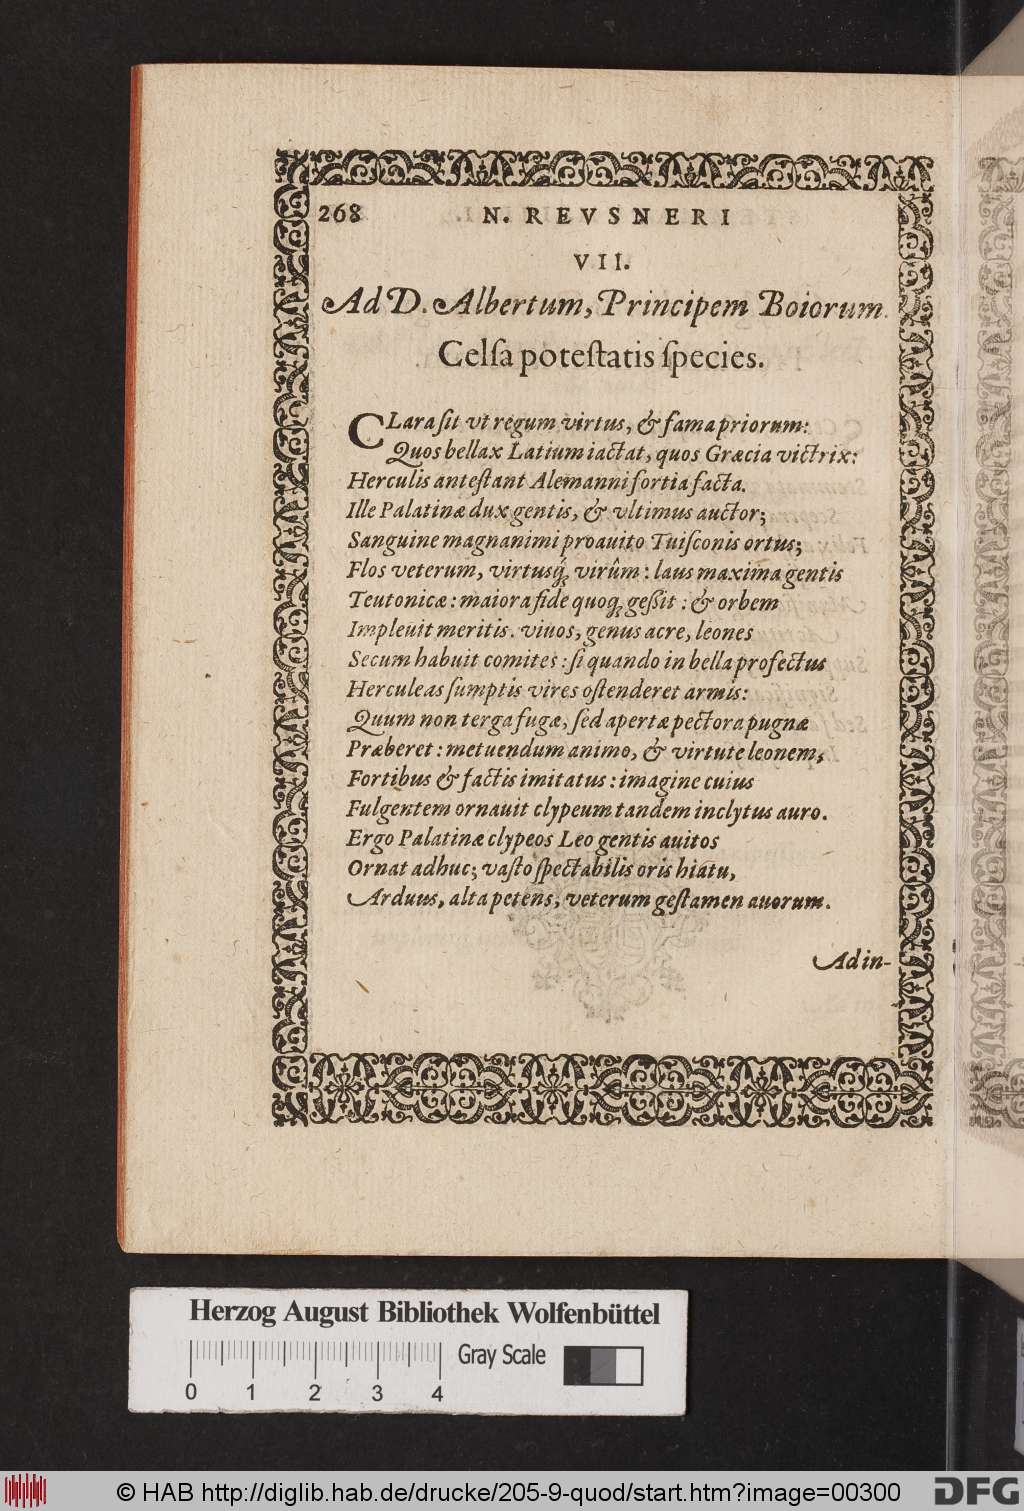 268 N. REVSNERI
VII.
Ad D. Albertum, Principem Boiorum.
Celſa poteſtatis ſpecies.
CLara ſit vt regum virtus, & fama priorum:
Quos bellax Latium iactat, quos Græcia victrix:
Herculis anteſtant Alemanni fortia facta.
Ille Palatinæ dux gentis, & vltimus auctor;
Sanguine magnanimi proauito Tuiſconis ortus;
Flos veterum, virtusq́; virûm: laus maxima gentis
Teutonicæ: maiora fide quoq; geßit: & orbem
Impleuit meritis. viuos, genus acre, leones
Secum habuit comites: ſi quando in bella profectus
Herculeas ſumptis vires oſtenderet armis:
Quum non terga fugæ, ſed apertæ pectora pugnæ
Præberet: metuendum animo, & virtute leonem,
Fortibus & factis imitatus: imagine cuius
Fulgentem ornauit clypeum tandem inclytus auro.
Ergo Palatinæ clypeos Leo gentis auitos
Ornat adhuc; vaſto ſpectabilis oris hiatu,
Arduus, alta petens, veterum geſtamen auorum.
Ad in-
Herzog August Bibliothek Wolfenbüttel
Gray Scale
0 1 2 3 4
© HAB http://diglib.hab.de/drucke/205-9-quod/start.htm?image=00300
DFG